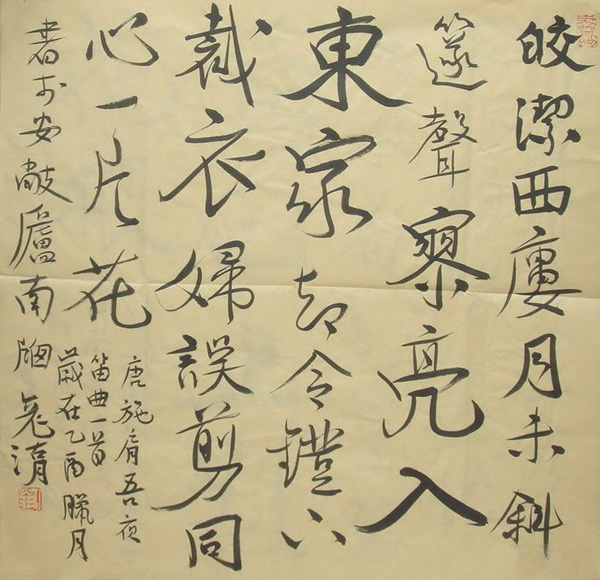 皎潔西廔月未斜
篴聲寥亮入
東家却令鐙下
裁衣婦誤剪同
心一片花
唐施肩吾夜
笛曲一首
歲在乙酉臘月
書於安敞廬南